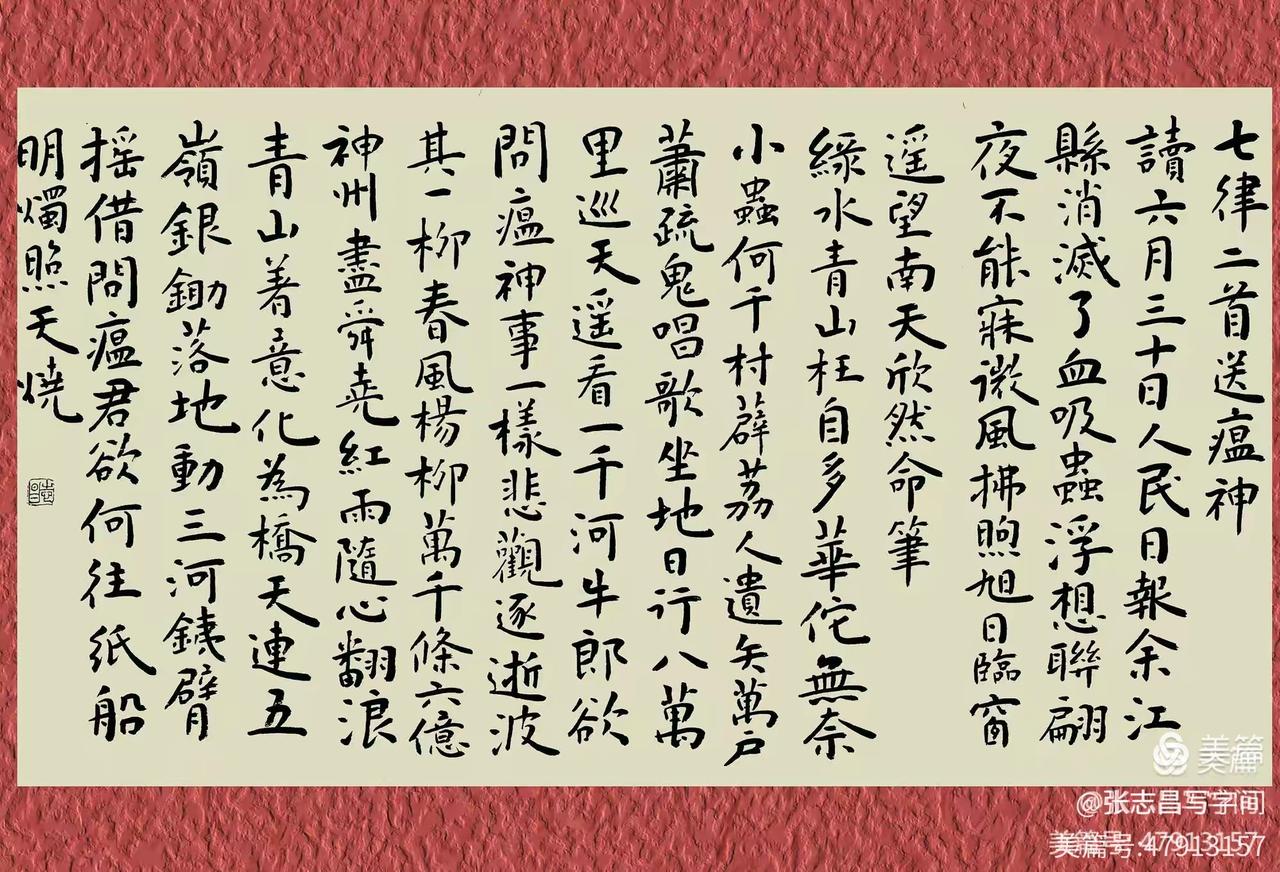 七律二首送瘟神
讀六月三十日人民日報余江
縣消滅了血吸蟲浮想聯翩
夜不能寐微風拂煦旭日臨窗
遥望南天欣然命筆
綠水青山枉自多華佗無奈
小蟲何千村薜荔人遺矢萬户
蕭疏鬼唱歌坐地日行八萬
里巡天遥看一千河牛郎欲
問瘟神事一樣悲觀逐逝波
其一柳春風楊柳萬千條六億
神州盡舜堯紅雨隨心翻浪
青山着意化為橋天連五
嶺銀鋤落地動三河鐵臂
摇借問瘟君欲何往紙船
明燭照天燒
志昌
美篇
@张志昌写字间
美篇号:47913157